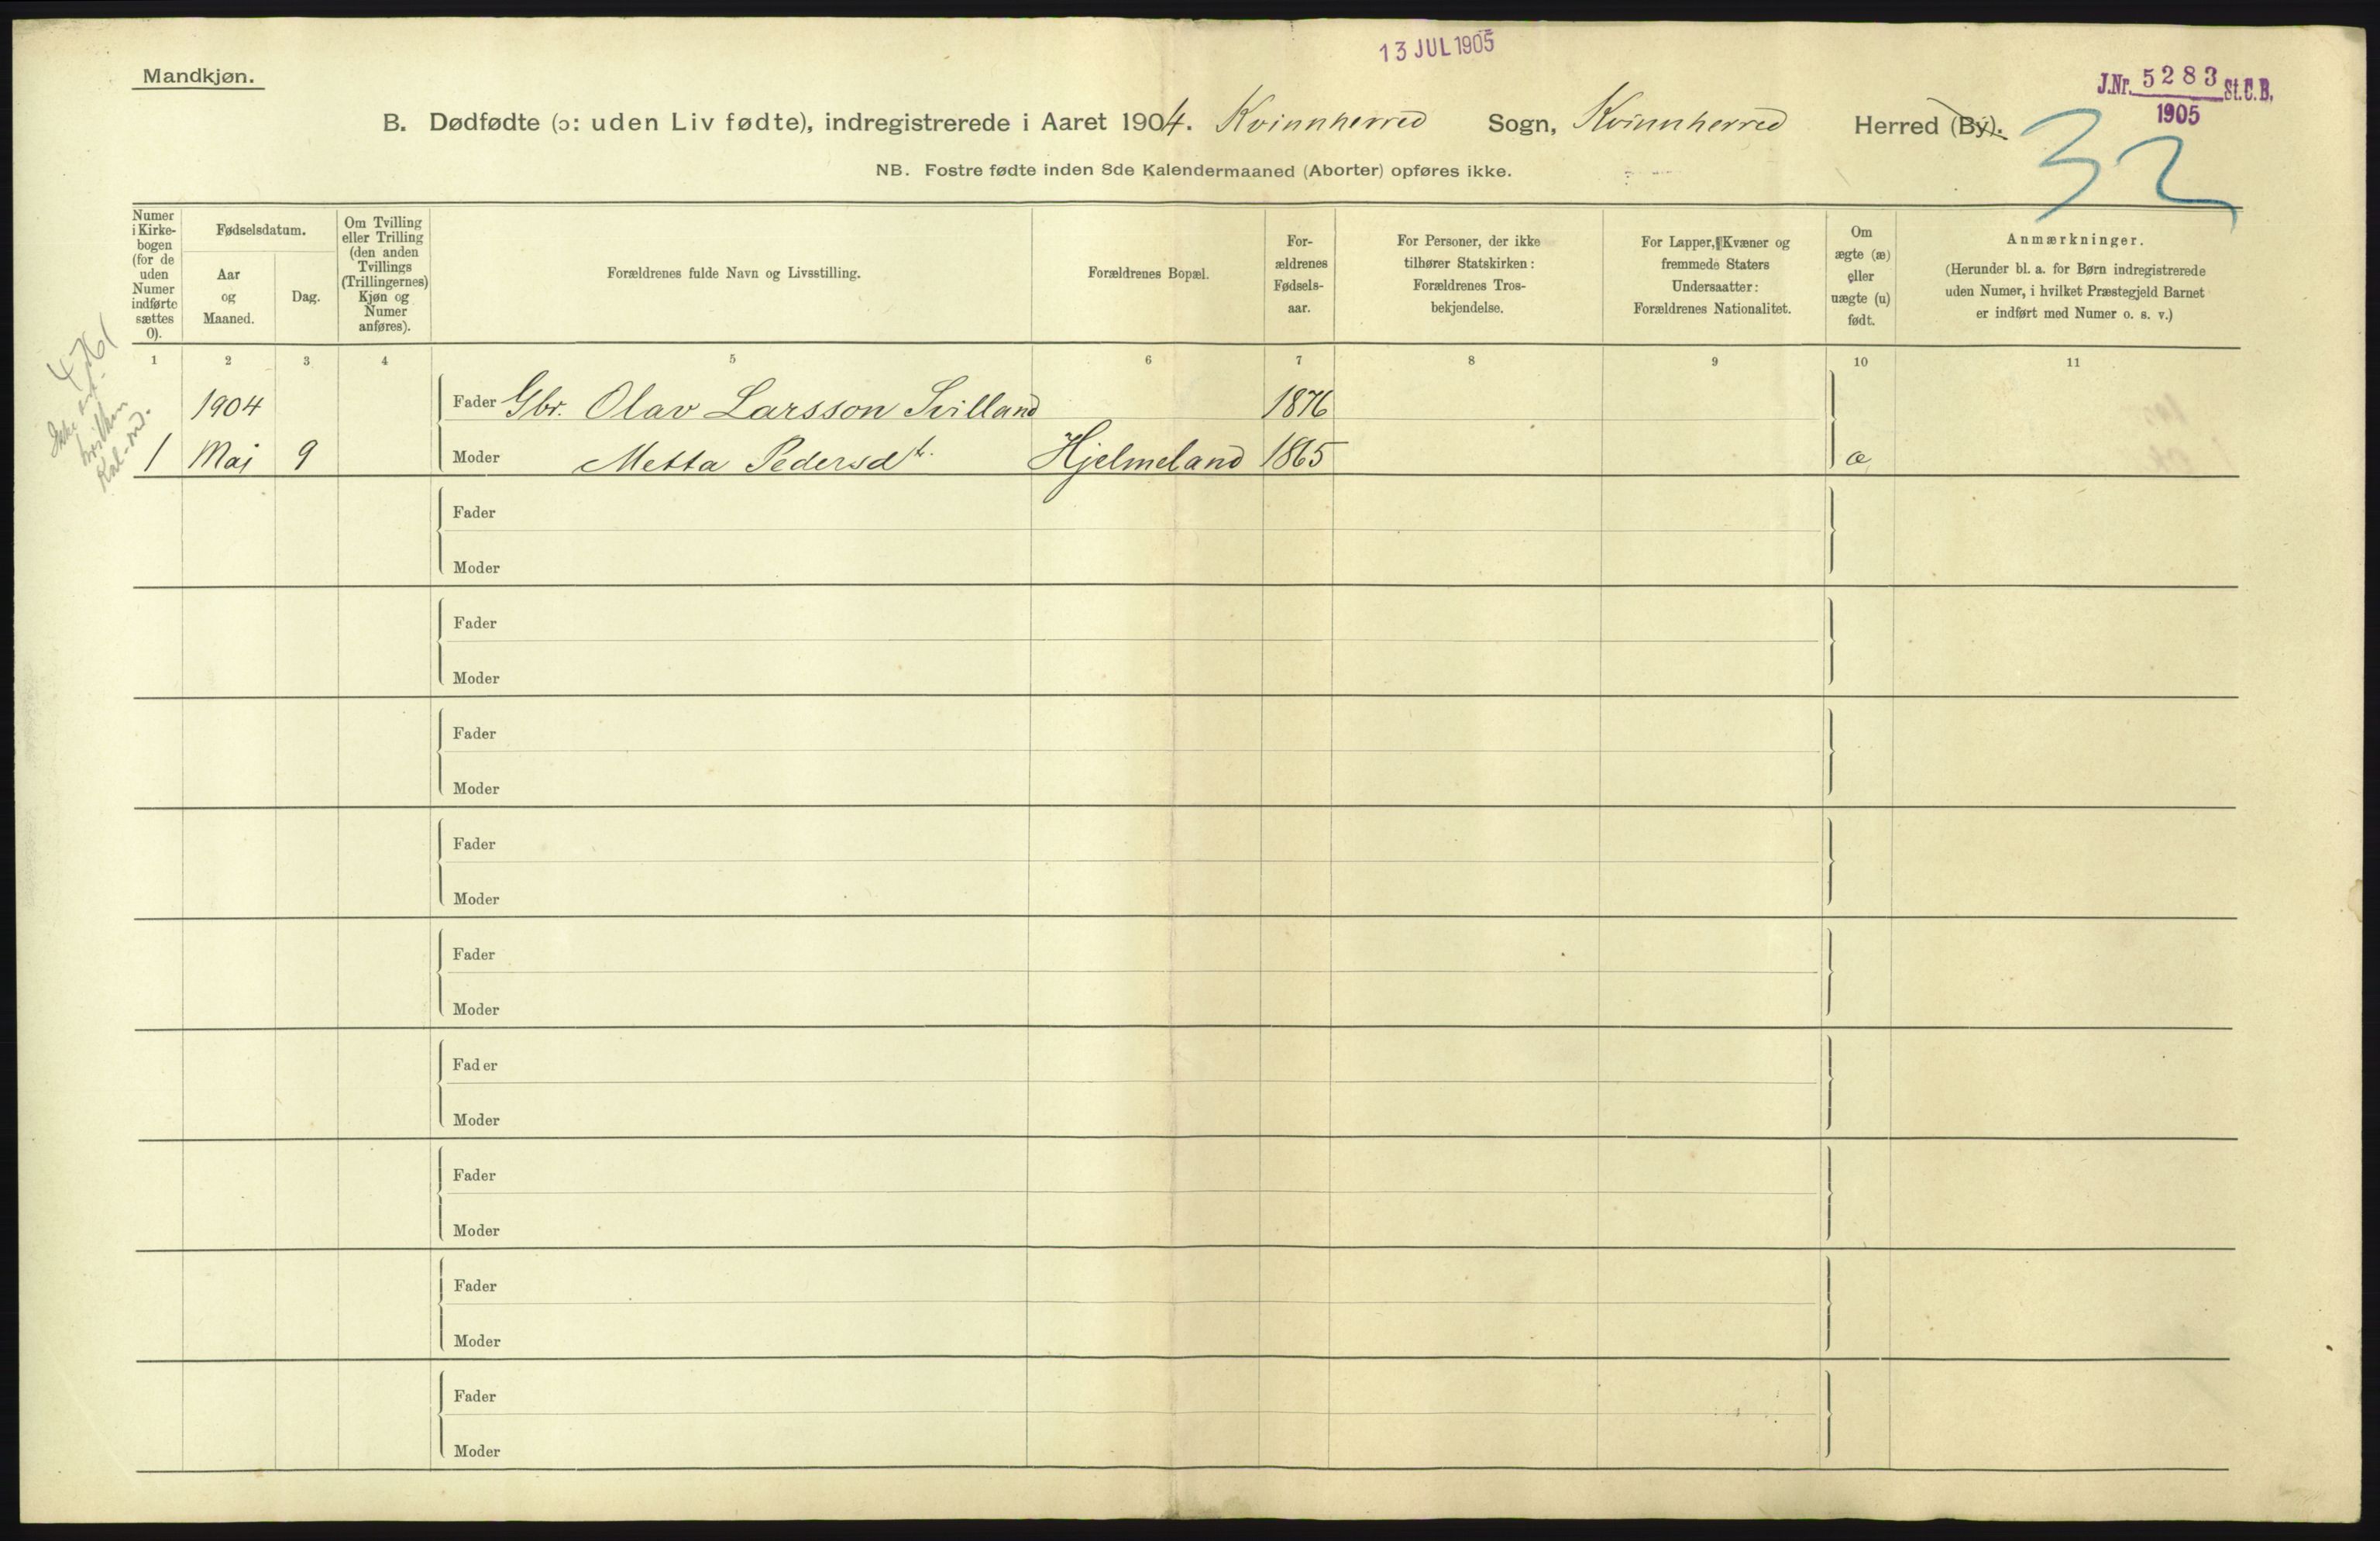 13 JUL 1905
Mandkjøn.
J.Nr. 5283 St.C.B.
1905
B. Dødfødte (ɔ: uden Liv fødte), indregistrerede i Aaret 1904. Kvinnherred Sogn, Kvinnherred Herred (By).
32
NB. Fostre fødte inden 8de Kalendermaaned (Aborter) opføres ikke.
Numer
i Kirke-
bogen
(for de
uden
Numer
indførte
sættes
0).
Fødselsdatum.
Aar
og
Maaned.
Dag.
Om Tvilling
eller Trilling
(den anden
Tvillings
(Trillingernes)
Kjøn og
Numer
anføres).
Forældrenes fulde Navn og Livsstilling.
Forældrenes Bopæl.
For-
ældrenes
Fødsels-
aar.
For Personer, der ikke
tilhører Statskirken:
Forældrenes Tros-
bekjendelse.
For Lapper, Kvæner og
fremmede Staters
Undersaatter:
Forældrenes Nationalitet.
Om
ægte (æ)
eller
uægte (u)
født.
Anmærkninger.
(Herunder bl. a. for Børn indregistrerede
uden Numer, i hvilket Præstegjeld Barnet
er indført med Numer o. s. v.)
1 2 3 4 5 6 7 8 9 10 11
1904 Fader Gbr. Olav Larsson 1876
1 Mai 9 Moder Metta Pedersdt. Hjelmeland 1865 æ
Ikke
hvilken
Kal-md.
Fader
Moder
Fader
Moder
Fader
Moder
Fader
Moder
Fader
Moder
Fader
Moder
Fader
Moder
Fader
Moder
Fader
Moder